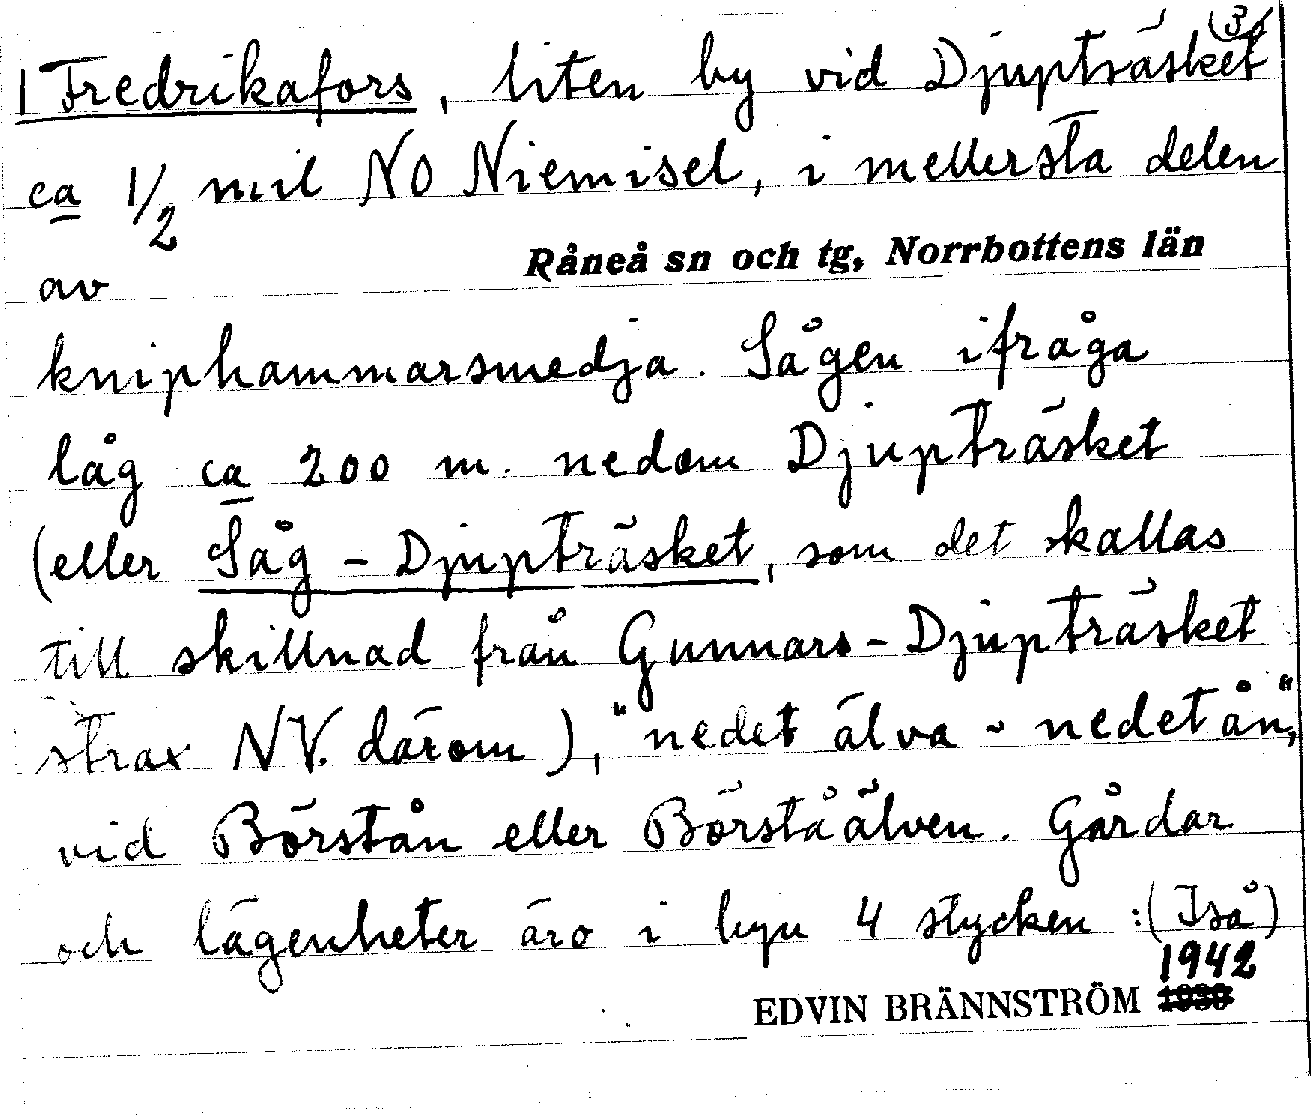 (3
1 Fredrikafors, liten by vid Djupträsket
ca 1/2 mil NO Niemisel, i mellersta delen
av Råneå sn och tg, Norrbottens län
kniphammarsmedja. Sågen ifråga
låg ca 200 m. nedom Djupträsket
(eller Såg-Djupträsket, som det kallas
till skillnad från Gunnars-Djupträsket
strax NV. därom), "nedet älva - nedet ån",
vid Börstån eller Börståälven. Gårdar
och lägenheter äro i byn 4 stycken :(Iså)
1942
EDVIN BRÄNNSTRÖM